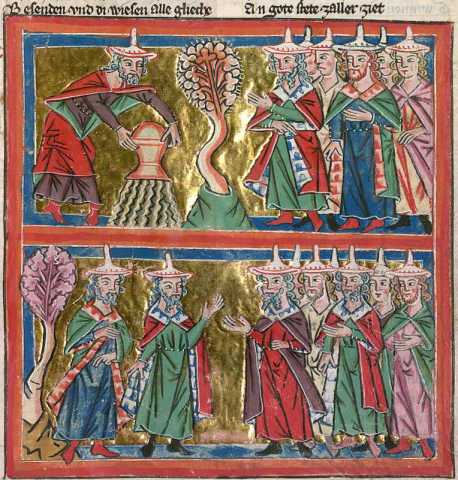 Besenden·vnd di wiesen alle glieche
An gote stete·zaller ziet